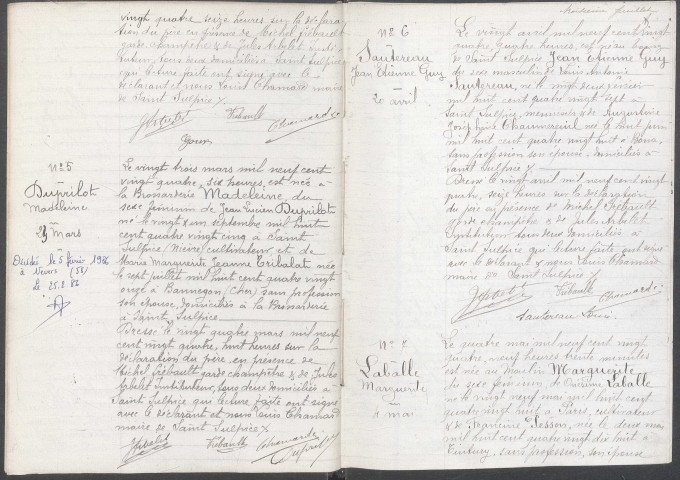 vingt quatre seize heures sur la déclara
tion du père en présence de Michel Fiébault
garde champêtre & de Jules Arbelet insti
tuteur, tous deux domiciliés à Saint Sulpice
qui lecture faite ont signé avec le
déclarant et nous Louis Chamard maire
de Saint Sulpice
JArbelet Fiébault Chamard
N° 5
Duprilot
Madeleine
23 Mars
Décédée le 5 février 1986
à Nevers (58)
Le 25.2.86
Le vingt trois mars mil neuf cent
vingt quatre, dix heures, est née à
la Bronarderie Madeleine, du
sexe féminin de Jean Lucien Duprilot
né le vingt & un septembre mil huit
cent quatre vingt cinq à Saint
Sulpice (Nièvre) cultivateur, et de
Marie Marguerite Jeanne Tribalat née
le sept juillet mil huit cent quatre vingt
onze à Bannegon (Cher) sans profession
son épouse, domiciliés à la Bronarderie
à Saint Sulpice
Dressé le vingt quatre mars mil neuf
cent vingt quatre, huit heures sur la
déclaration du père, en présence de
Michel Fiébault garde champêtre & de Jules
Arbelet Instituteur, tous deux domiciliés à
Saint Sulpice qui lecture faite ont signé
avec le déclarant et nous Louis Chamard
maire de Saint Sulpice
JArbelet Fiébault Chamard
Duprilot
N° 6
Sautereau
Jean Etienne Guy
20 avril
Le vingt avril mil neuf cent vingt
quatre, quatre heures, est né au bourg
de Saint Sulpice Jean Etienne Guy
du sexe masculin de Louis Antoine
Sautereau, né le vingt deux janvier
mil huit cent quatre vingt sept à
Saint Sulpice, menuisier & de Augustine
Joséphine Chaumereuil née le huit juin
mil huit cent quatre vingt huit à Bona,
sans profession son épouse domiciliés à
Saint Sulpice
Dressé le vingt avril mil neuf cent vingt
quatre, seize heures sur la déclaration
du père en présence de Michel Fiébault
garde champêtre & de Jules Arbelet
Instituteur tous deux domiciliés à
Saint Sulpice qui lecture faite ont signé
avec le déclarant & nous Louis Chamard
maire de Saint Sulpice
JArbelet Fiébault Chamard
Sautereau Louis
N° 7
Laballe
Marguerite
4 mai
Le quatre mai mil neuf cent vingt
quatre, neuf heures trente minutes
est née au Martin Marguerite
du sexe féminin, de Laballe
né le vingt neuf mai mil huit cent
quatre vingt huit à Paris, cultivateur
& de Tesson, née le deux mai
mil huit cent quatre vingt dix huit à
sans profession, son épouse